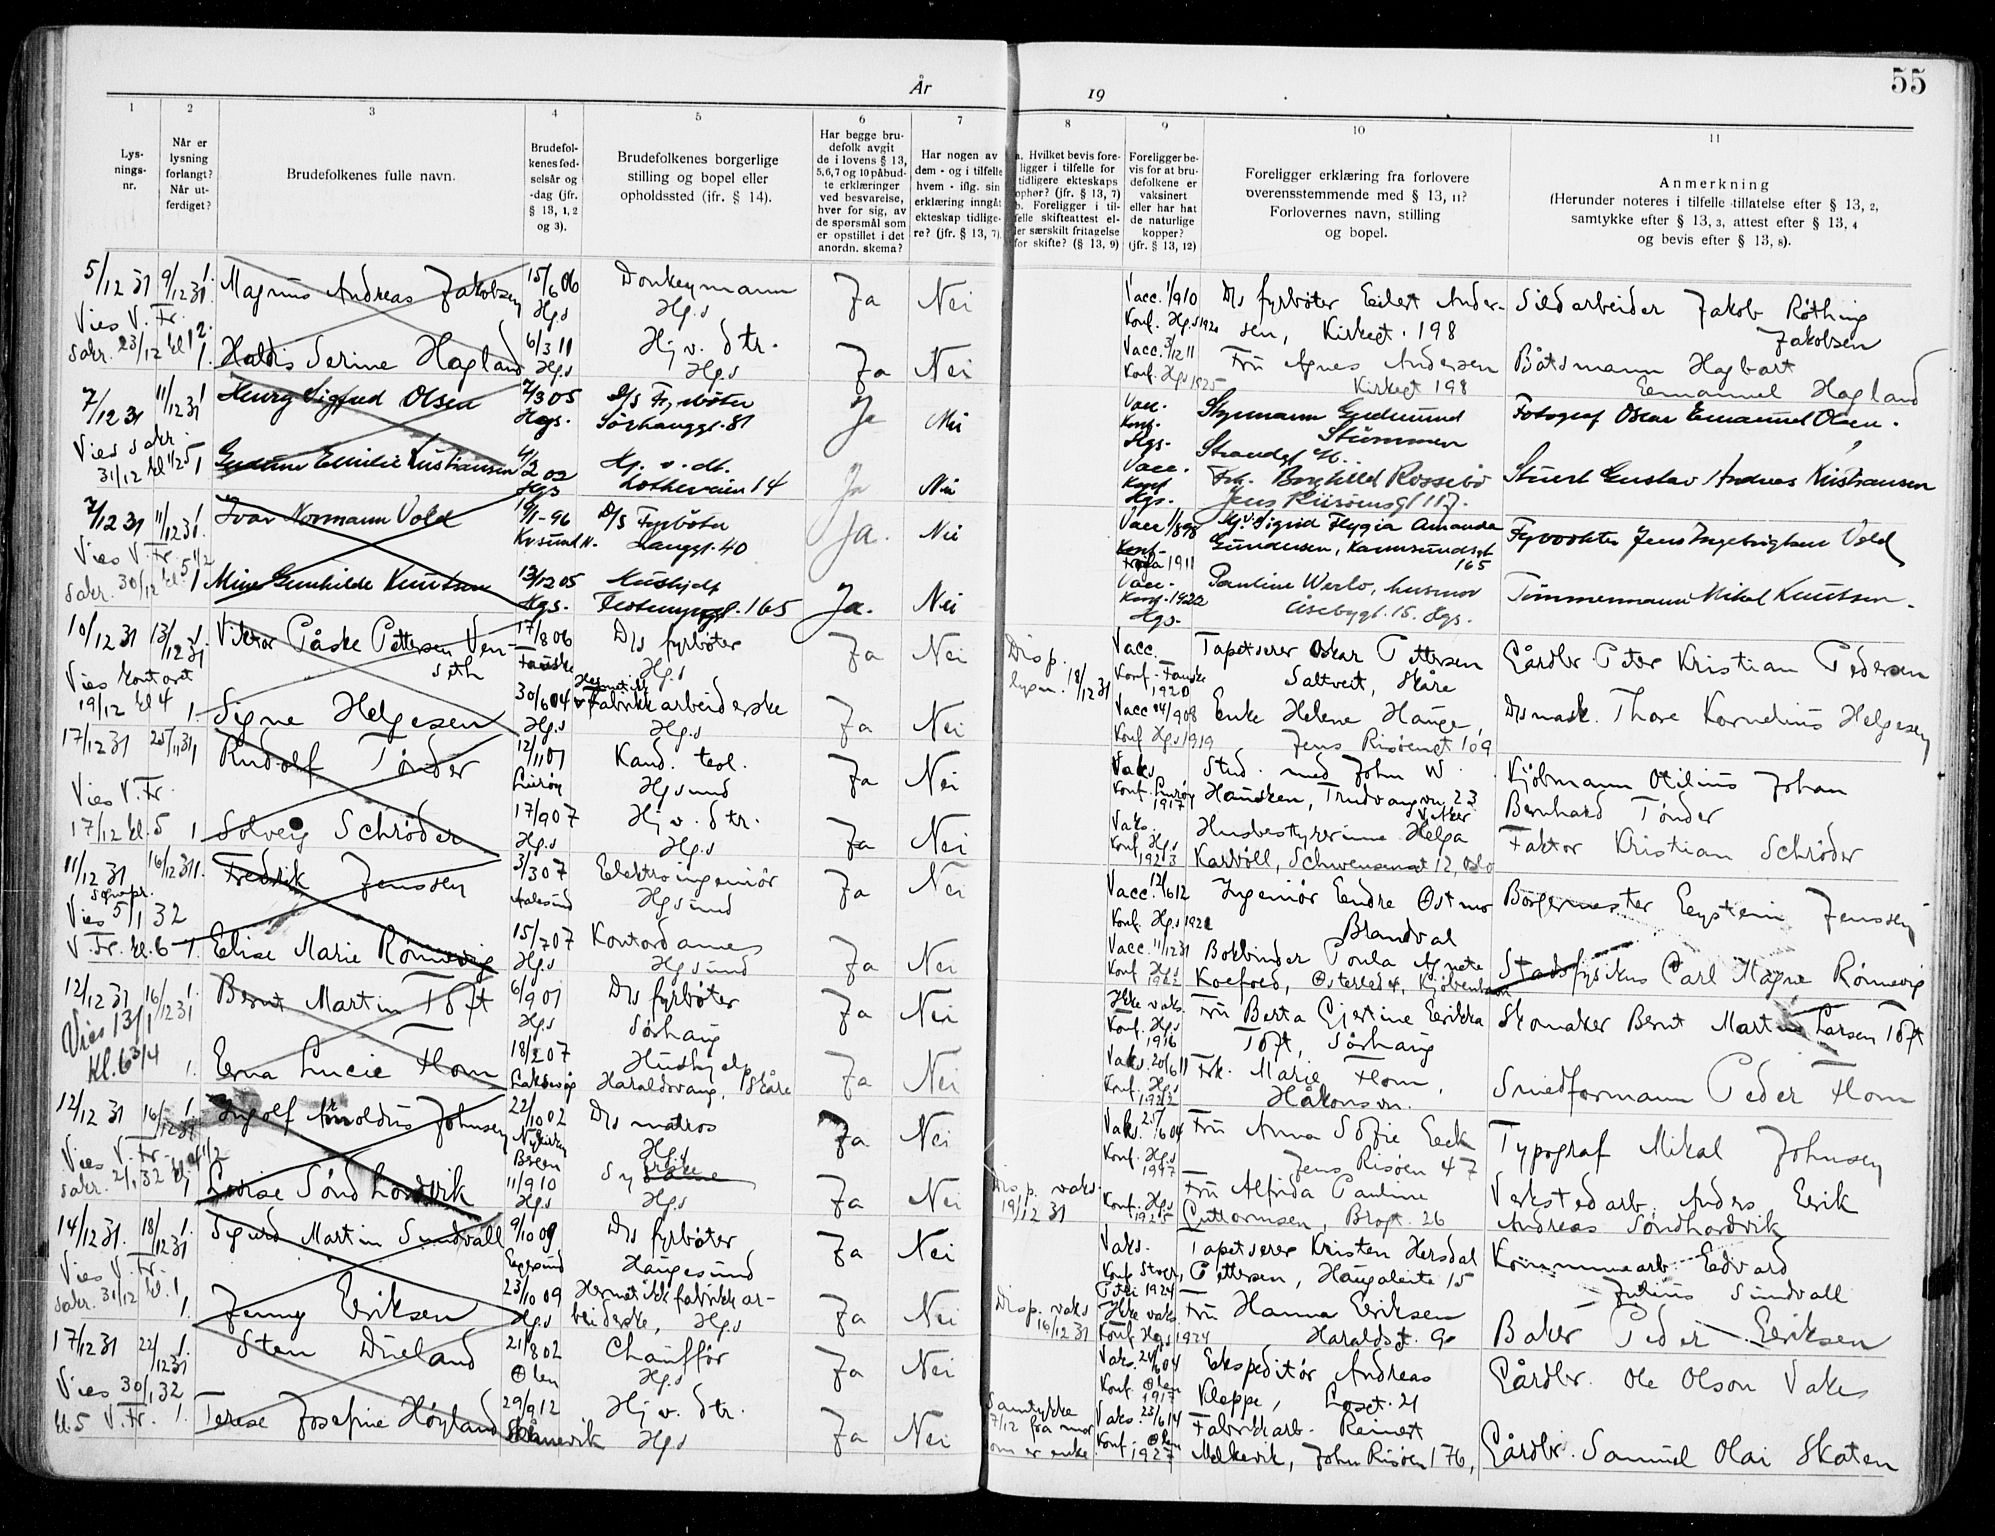 År 19
55
1
2
3
4
5
6
7
8
9
10
11
Lys-
nings-
nr.
Når er
lysning
forlangt?
Når ut-
ferdiget?
Brudefolkenes fulle navn.
Brudefol-
kenes fød-
selsår og
-dag (jfr.
§ 13, 1, 2
og 3).
Brudefolkenes borgerlige
stilling og bopel eller
opholdssted (jfr. § 14).
Har begge bru-
defolk avgit
de i lovens § 13,
5,6,7 og 10 påbud-
te erklæringer
ved besvarelse,
hver for sig, av
de spørsmål som
er opstillet i det
anordn. skema?
Har nogen av
dem - og i tilfelle
hvem - iflg. sin
erklæring inngåt
ekteskap tidlige-
re? (jfr. § 13, 7).
a. Hvilket bevis fore-
ligger i tilfelle for
tidligere ekteskaps
ophør? (jfr. § 13, 7)
b. Foreligger i til-
felle skifteattest el-
ler særskilt fritagelse
for skifte? (§ 13, 9)
Foreligger be-
vis for at bru-
defolkene er
vaksinert
eller har hat
de naturlige
kopper?
(jfr. § 13, 12)
Foreligger erklæring fra forlovere
overensstemmende med § 13, 11?
Forlovernes navn, stilling
og bopel.
Anmerkning
(Herunder noteres i tilfelle tillatelse efter § 13, 2,
samtykke efter § 13, 3, attest efter § 13, 4
og bevis efter § 13, 8).
5/12 31 9/12 31 1. Magnus Andreas Jakobsen 15/6 06 Hgs Donkeymann Hgs Ja Nei Vacc. 1/9 10 Konf. Hgs 1920 D/s fyrbøter Eilert Ander-
sen, Kirkegt. 198 Sildarbeider Jakob Røthing
Jakobsen
Vies V. Fr.
sakr. 23/12 kl 12.
1. Haldis Serine Hagland 6/3 11 Hgs Hj v. dtr. Hgs Ja Nei Vacc. 3/12 11 Konf. Hgs 1925 Fru Agnes Andersen
Kirkegt 198 Båtsmann Hagbart
Emanuel Hagland
7/12 31 11/12 31 1 Henry Sigfred Olsen 7/3 05 Hgs. D/S Fyrbøter
Sørhauggt. 81 Ja Nei Vacc. Konf. Hgs. Styrmann Gudmund
Stummen
Fotograf Oskar Emanuel Olsen.
Vies sakr.
31/12 kl 1/2 5 1 Gudrun Emilie Kristiansen 2 02 Hgs Hj. v. dt.
Lotheveien 14 Ja Nei Vacc. Konf Hgs. Frk. Borghild Rossebø
Jens Risøensgt 117. Stuert Gustav Andreas Kristiansen
7/12 31 11/12 31 1 Ivar Normann Vold 19/1-96 Kv.sund N. D/S Fyrbøter
Langgt. 40 Ja. Nei Vacc 1/8 98 1911 Hj.v. Sigrid Hygia Amanda
Gundersen, Karmsundsgt
165 Fyrvokter Jens Ingebrigtsen Vold
Vies V. Fr.
sakr. 30/12 kl. 5 1/2
1 Mina Gunhilde Knutsen 13/12 05 Hgs. Hushjelp
165 Ja. Nei Vacc. Konf. 1922 Hgs. Pauline Werlo, husmor
Åsebygt. 15. Hgs. Tømmermann Mikal Knutsen.
10/12 31 13/12 31 1. Viktor Påske Pettersen Ven-
seth 17/8 06 Fauske D/s fyrbøter
Hgs Ja Nei Disp.
lysn. 18/12 31 Vacc. Konf. Fauske 1920 Tapetserer Oskar Pettersen
Saltveit, Skåre Gårdbr. Peter Kristian Pedersen
Vies kontoret
19/12 kl 4
1. Signe Helgesen 30/6 04 Hgs Hermetikk
Fabrikkarbeiderske
Hgs Ja Nei Vacc 24/9 08 Konf Hgs 1919 Enke Helene Hauge,
Jens Risøengt 109 D/s mask. Thore Kornelius Helgesen
17/12 31 25/11 31 1 Rudolf Tønder 12/11 01 Lurøy Kand. teol.
Hgsund Ja Nei Vaks. Konf. Lurøy 1917 Stud. med John W.
Hausken, Trudvangvn. 23
V. Aker Kjøbmann Otilius Johan
Bernhard Tønder
Vies V. Fr.
17/12 kl. 5 1 Solveig Schrøder 17/9 07 Hgs Hj v. dtr.
Hgs Ja Nei Vaks. Konf. Hgs 1923 Husbestyrerinne Helga
Karvöll, Schwensensgt 12, Oslo Faktor Kristian Schrøder
11/12 31 16/12 31 1. Fredrik Jenssen 3/3 07 Aalesund Elektroingeniør
Hgsund Ja Nei Vacc. 12/6 12 Konf. Hgs 1921 Ingeniør Endre Østmo
Brandval Borgermester Eystein Jenssen
sognepr.
Vies 5/1 32
V. Fr. kl. 6 1. Elise Marie Rønnevig 15/7 07 Hgs Kontordame
Hgsund Ja Nei Vacc. 11/12 31 Konf Hgs 1922 Bokbinder Paula Agnete
Koefoed, Østerled 4, Kjøbenhavn Stadsfysikus Carl Magne Rønnevig
12/12 31 16/12 31 1. Bernt Martin Toft 6/9 01 Hgs D/s fyrbøter
Sørhaug Ja Nei Ikke vaks. Konf. Hgs 1916 Fru Berta Gjertine Eerikka
Toft, Sørhaug Skomaker Bernt Martin Larsen Toft
Vies 13/1
Kl. 6 3/4 1. Erna Lucie Flom 18/2 07 Laksevåg Hushjelp
Haraldsvang, Skåre Ja Nei Vaks. 20/6 11 Konf. Hgs 1922 Frk. Marie Flom,
Håkonsvn. Smedformann Peder Flom
12/12 31 16/12 31 1 Ingolf Arnoldus Johnsen 22/10 02 Nykirken Bergen D/s matros
Hgs Ja Nei Vaks. 6 04 Konf. Hgs 1917 Fru Anna Sofie Eeck
Jens Risøen 47 Typograf Mikal Johnsen
Vies V. Fr.
sakr. 2/1 32 kl 4 1/2
1 Lovise Søndhordvik 11/9 10 Hgs Syerske
Hgs Ja Nei Disp. vaks.
19/12 31 Konf. Hgs 1925 Fru Alfrida Pauline
Guttormsen, Brogt. 26 Verkstedarb. Anders Erik
Andreas Søndhordvik
14/12 31. 18/12 31 1. Sigurd Martin Sundvall 9/10 09 Egersund D/s fyrbøter
Haugesund Ja Nei Vaks. Konf Stvgr, Petri 1924 Tapetserer Kristen Hersdal
Pettersen, Haugaleite 15 Kommunearb. Edvard
Julius Sundvall
Vies V. Fr.
sakr. 31/12 kl. 1
1. Jenny Eeriksen 23/10 09 Hgs Hermetikkfabrikkar-
beiderske, Hgs Ja Nei Disp. vaks
16/12 31 Ikke vaks. Konf Hgs 1924 Fru Hanna Eeriksen
Haraldst. 90 Baker Peder Eeriksen
17/12 31 22/12 31 1. Sten Dueland 21/8 02 Ølen Chauffør
Hgs Ja Nei Vaks. 24/6 04 Konf Ølen 1917 Ekspeditør Andreas
Kleppe, Loset. 21 Gårdbr. Ole Olson Vakes
Vies 30/1 32
kl. 5 V. Fr. 1. Terese Josefine Høyland 29/9 12 Skånevik Hj v. dtr.
Hgs Ja Nei Samtykke
7/12 fra mor
som er enke Vaks. 23/6 14 Konf. Ølen 1927 Fabrikkarb. Reinert
Melkevik, John Risøen 176, Gårdbr. Samuel Olai Skaten